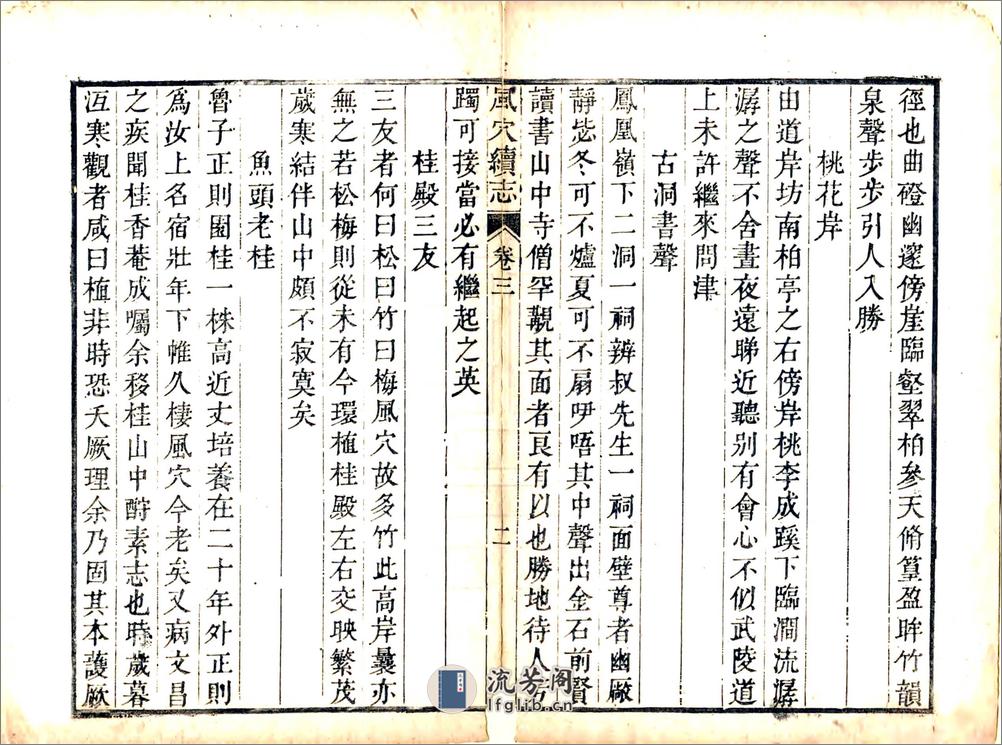 徑也曲磴幽邃傍崖臨壑翠柏參天脩篁盈眸竹韻
泉聲步步引人入勝
桃花岸
由道岸坊南柏亭之右傍岸桃李成蹊下臨澗流潺
潺之聲不舍晝夜遠睇近聽别有會心不似武陵道
上未許繼來問津
古洞書聲
鳳凰嶺下二洞一祠辨叔先生一祠面壁尊者幽厰
靜毖冬可不爐夏可不扇吚唔其中聲出金石前賢
讀書山中寺僧罕觀其面者良有以也勝地待人
風穴續志 卷三 二
躅可接當必有繼起之英
桂殿三友
三友者何曰松曰竹曰梅風穴故多竹此高岸曩亦
無之若松梅則從未有今環植桂殿左右交映繁茂
歲寒結伴山中頗不寂寞矣
魚頭老桂
魯子正則園桂一株高近丈培養在二十年外正則
爲汝上名宿壯年下帷久棲風穴今老矣又病文昌
之疾聞桂香菴成囑余移桂山中酧素志也時歲暮
冱寒觀者咸曰植非時恐夭厥理余乃固其本護厥
流芳阁
lfglib.cn